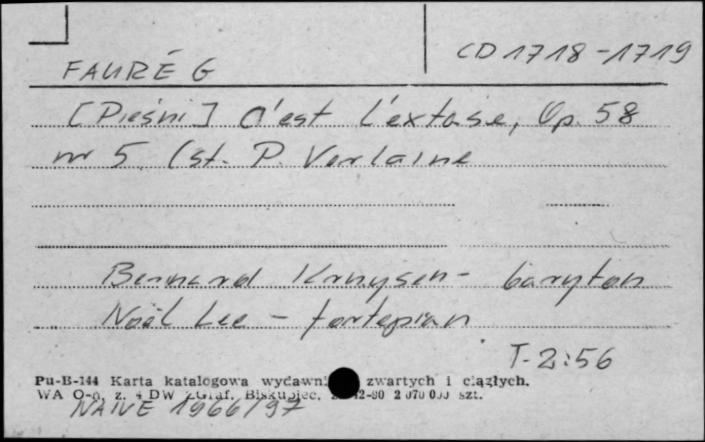 CD 1718-1719
FAURÉ G
[Pieśni] C'est l'extase, Op. 58
nr 5 (st. P. Verlaine
Bernard Kruysen - baryton
Noël Lee - fortepian
T-2:56
Pu-B-144 Karta katalogowa zwartych i ciągłych.
WA O-n, z. 4 DW Biskupiec, 2 070 000 szt.
NAIVE 1966/97